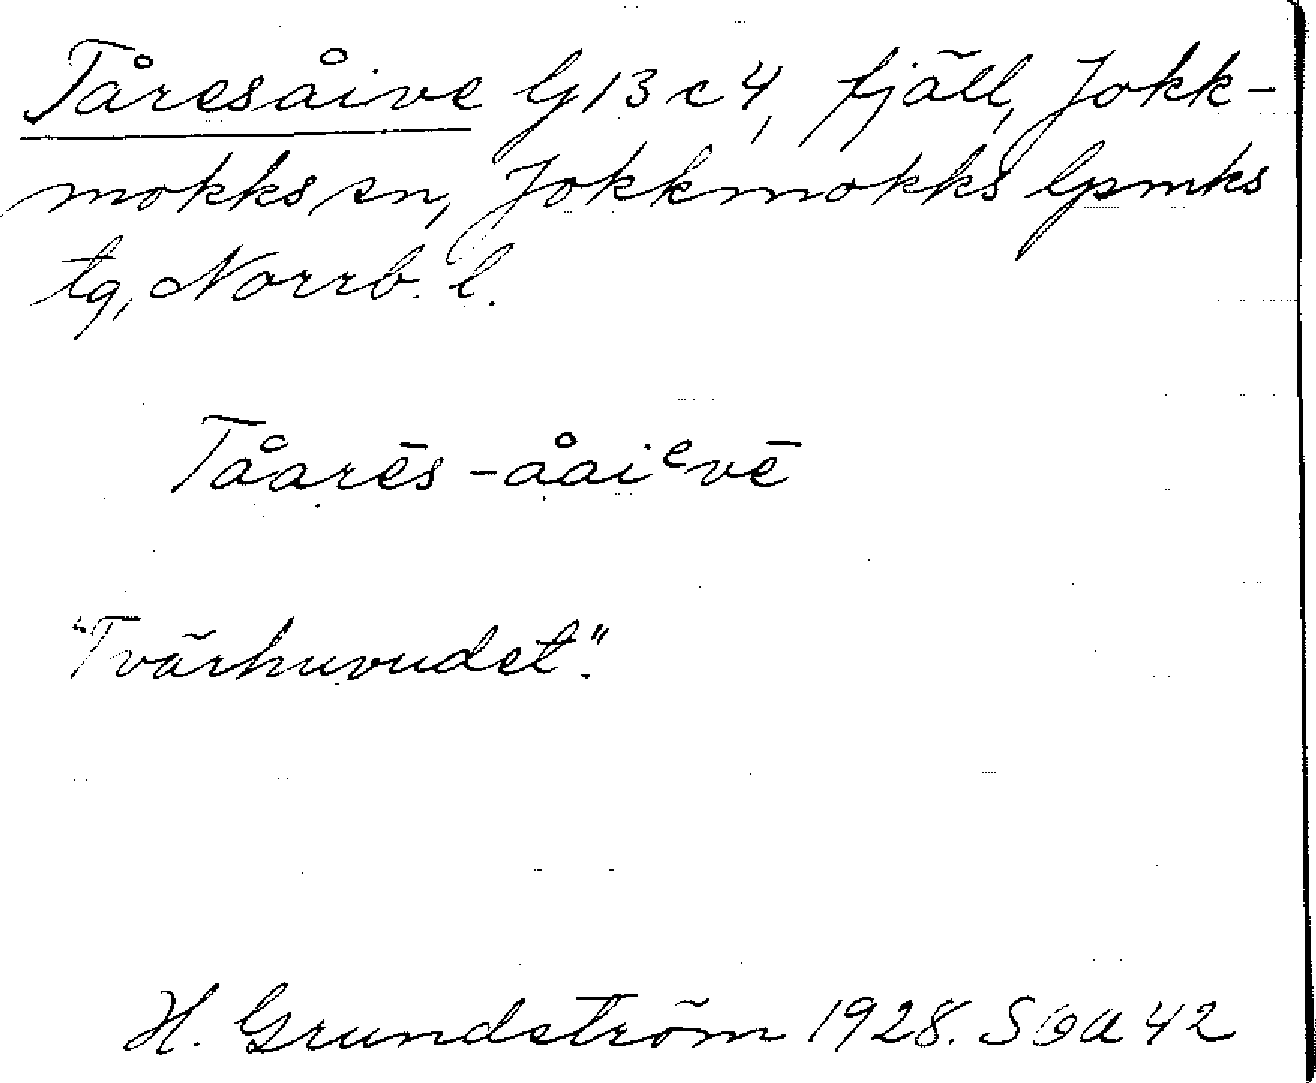 Tåresåive G13c4, fjäll, Jokk-
mokks sn, Jokkmokks lpmks
tg, Norrb. l.
Tåarēs-åaiᵉvē
"Tvärhuvudet".
H. Grundström 1928. SOA 42